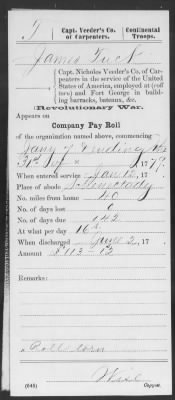 T | Capt. Veeder's Co. of Carpenters. | Continental Troops.
James Tuck
Capt. Nicholas Veeder's Co. of Car-
penters in the service of the United
States of America, employed at (cof
fers) and Fort George in build-
ing barracks, bateaux, &c.
Revolutionary War.
Appears on
Company Pay Roll
of the organization named above, commencing
Jany 1 & ending the
31st 177
When entered service Jan 12, 17
Place of abode
No. miles from home 40
No. of days lost 0
No. of days due 142
At what per day 16 s
When discharged June 2, 17
Amount £ 113-12
Remarks:
Roll torn
(646) Wise Copyist.